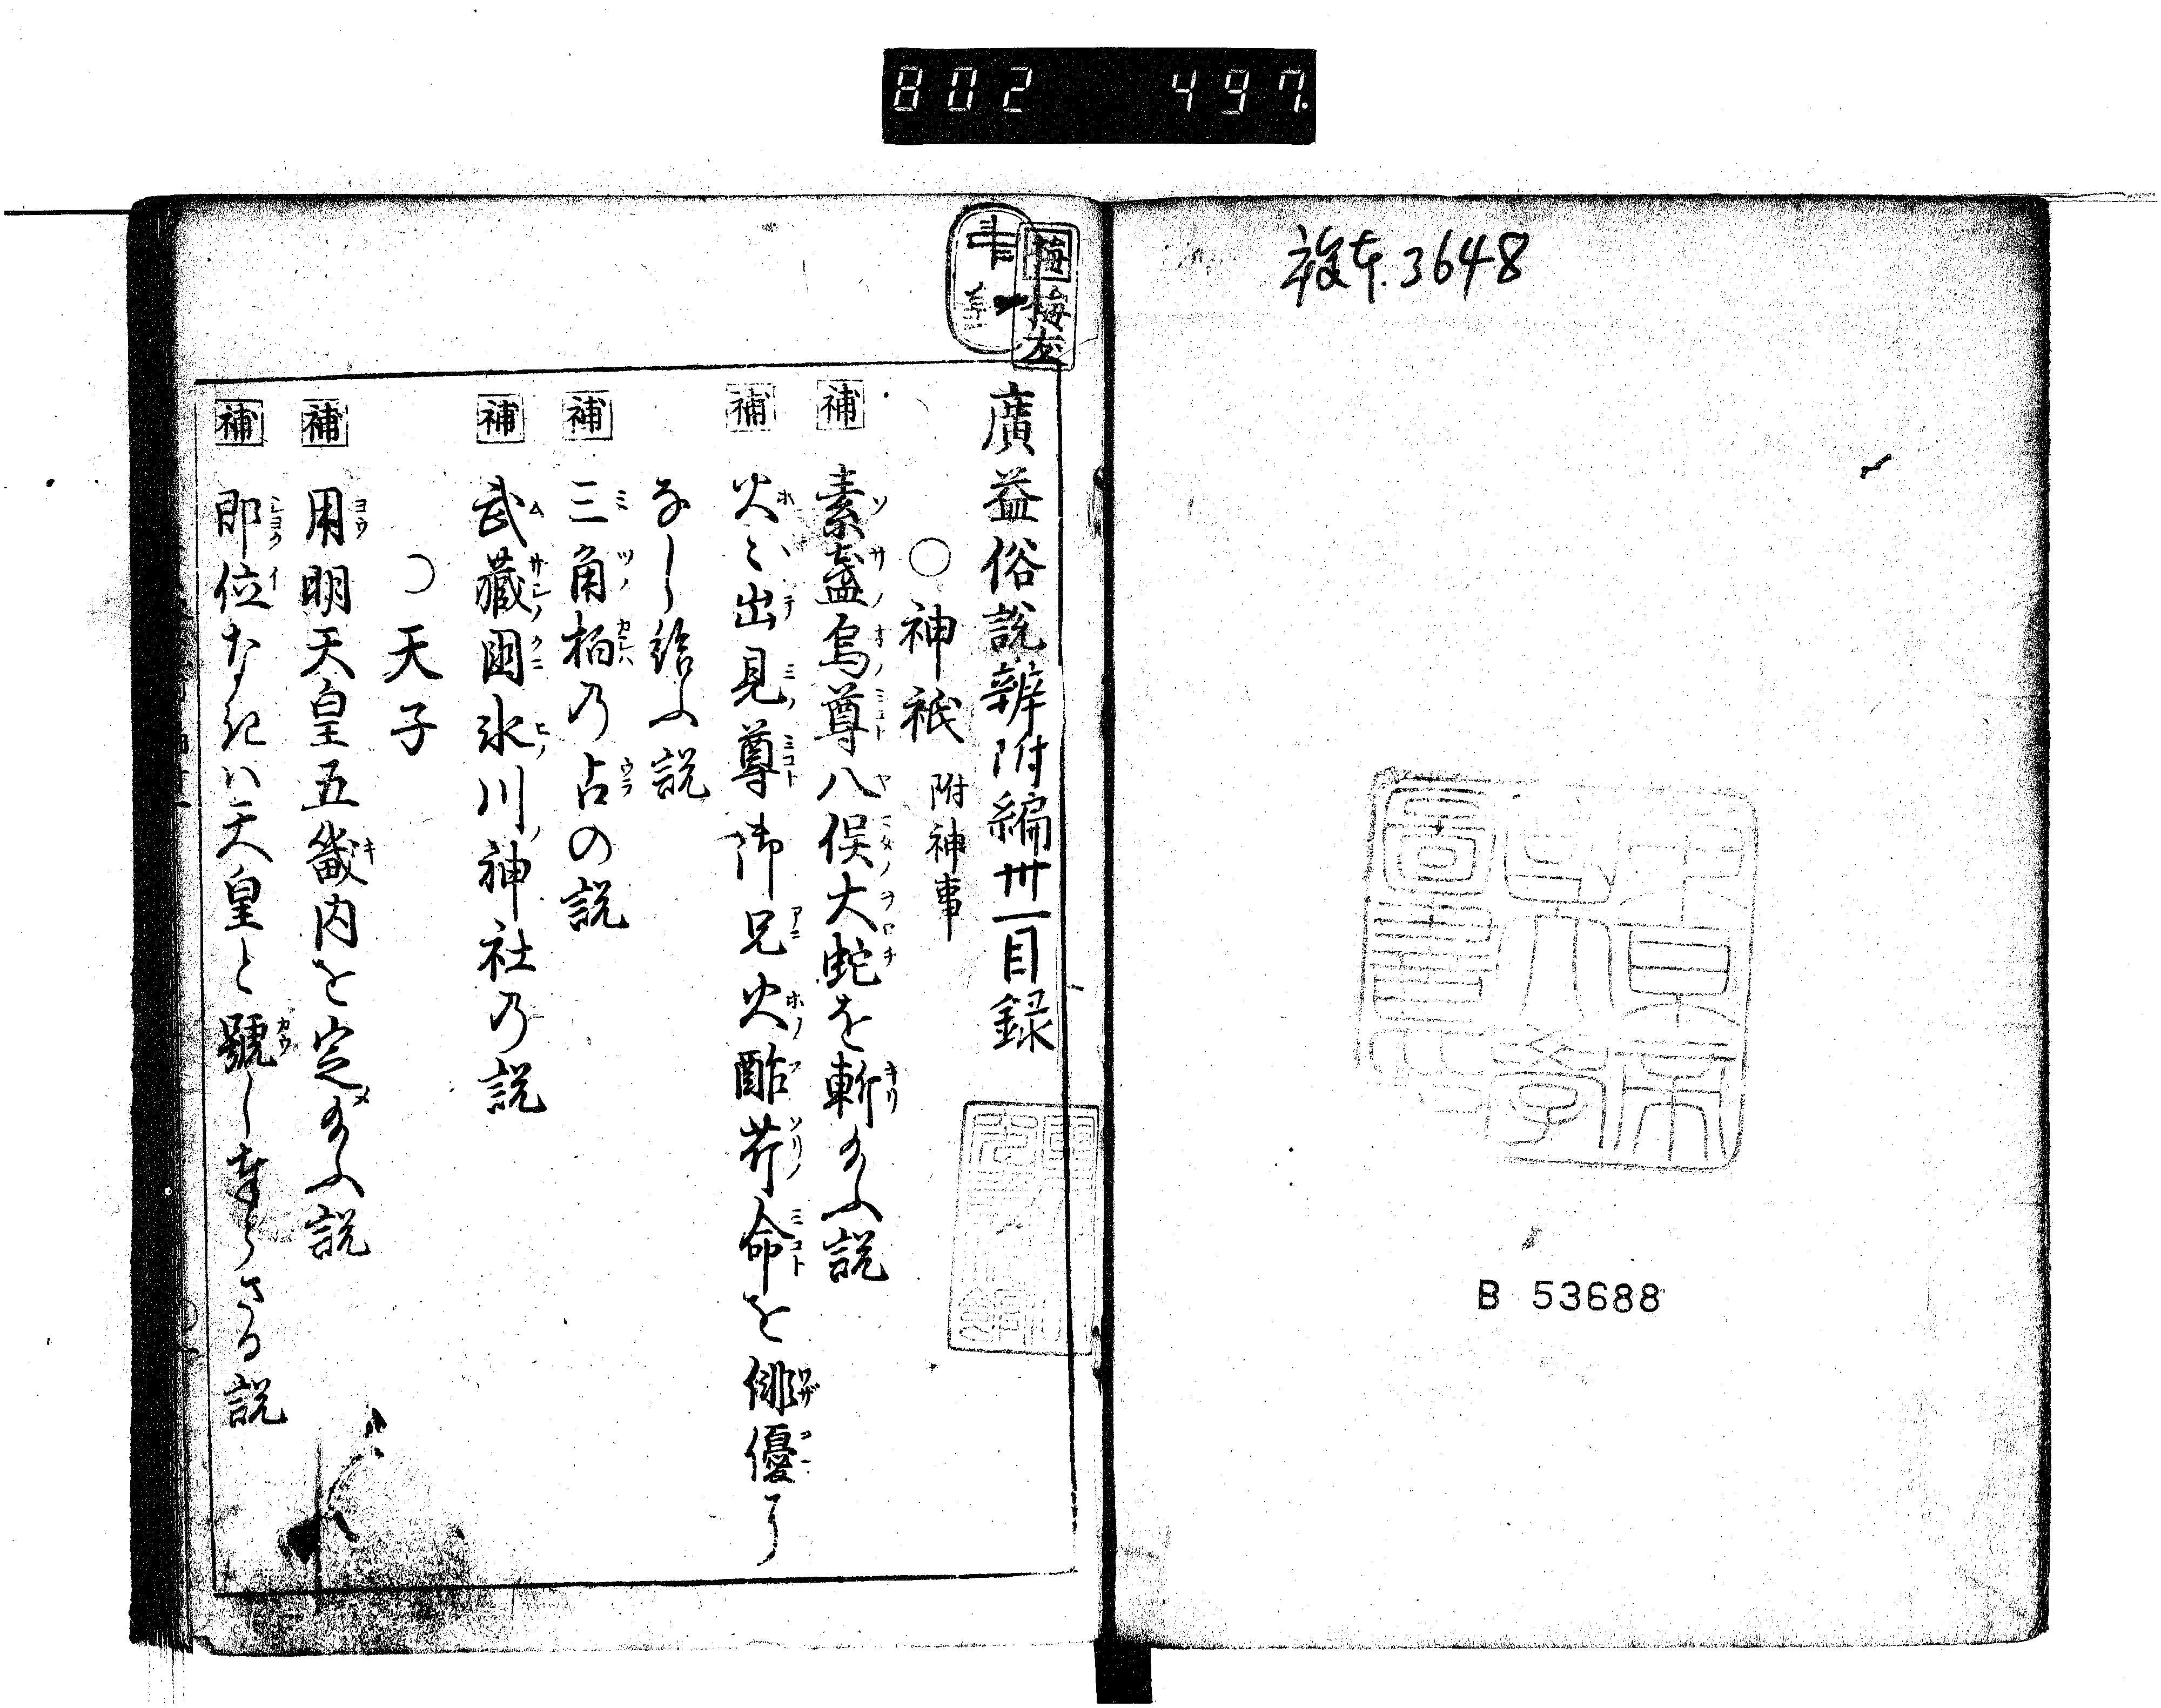 802 497.
複本.3648
B 53688
廣益俗說辨附編卅一目録
○神祇 附神事
補 素盞烏尊八俣大蛇を斬給ふ説
補 火々出見尊御兄火酢芹命を俳優に
なし給ふ説
補 三角柏乃占の説
補 武藏國氷川神社乃説
○天子
補 用明天皇五畿内を定給ふ説
補 即位なきハ天皇と號し奉らさる説